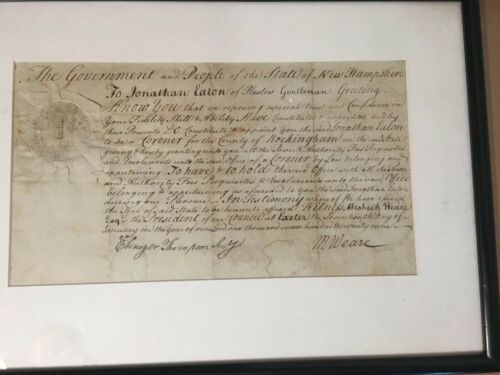 The Government and People of the State of New Hampshire
To Jonathan Eaton of Plastow Gentleman Greeting
Know You that we reposing especial trust and Confidence in
Your Fidelity Skill & Ability Have Constituted & appointed and by
these Presents Do Constitute & appoint You the said Jonathan Eaton
to be a Coroner for the County of Rockingham in the said State
giving & hereby granting unto you
and Emoluments unto the said Office of a Coroner by Law belonging or
appertaining To have & to hold the said Office with all the
and Authority Fees Perquisites & Emoluments unto the said Office
belonging & appertaining as aforesaid to you the said Jonathan Eaton
during our Pleasure. In Testimony whereof We have caused
the Seal of said State to be hereunto affixed Witness Meshech Weare
Esqr. the President of our Council at Exeter the Seventeenth Day of
January in the Year of our Lord one thousand seven hundred & seventy nine
Ebenezer Thompson Secry
M Weare